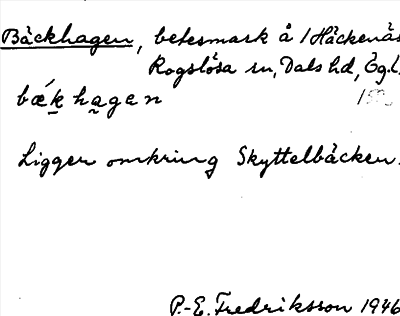 Bäckhagen, betesmark å 1 Häckenäs
Rogslösa sn, Dals hd, Ög.l.
bǽk hagen
Ligger omkring Skyttelbäcken.
P.-E. Fredriksson 1946